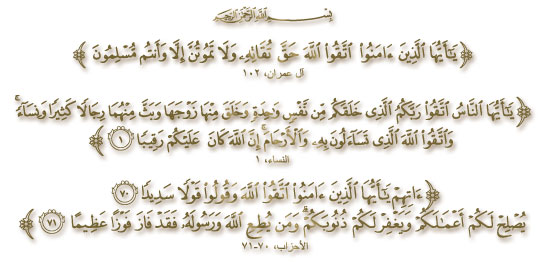 بسم الله الرحمن الرحيم
﴿يَٰٓأَيُّهَا ٱلَّذِينَ ءَامَنُوا۟ ٱتَّقُوا۟ ٱللَّهَ حَقَّ تُقَاتِهِۦ وَلَا تَمُوتُنَّ إِلَّا وَأَنتُم مُّسْلِمُونَ﴾
آل عمران، ١٠٢
﴿يَٰٓأَيُّهَا ٱلنَّاسُ ٱتَّقُوا۟ رَبَّكُمُ ٱلَّذِى خَلَقَكُم مِّن نَّفْسٍ وَٰحِدَةٍ وَخَلَقَ مِنْهَا زَوْجَهَا وَبَثَّ مِنْهُمَا رِجَالًا كَثِيرًا وَنِسَآءً ۚ
وَٱتَّقُوا۟ ٱللَّهَ ٱلَّذِى تَسَآءَلُونَ بِهِۦ وَٱلْأَرْحَامَ ۚ إِنَّ ٱللَّهَ كَانَ عَلَيْكُمْ رَقِيبًا ١﴾
النساء، ١
﴿ءَاتِهِمْ يَٰٓأَيُّهَا ٱلَّذِينَ ءَامَنُوا۟ ٱتَّقُوا۟ ٱللَّهَ وَقُولُوا۟ قَوْلًا سَدِيدًا ٧٠
يُصْلِحْ لَكُمْ أَعْمَٰلَكُمْ وَيَغْفِرْ لَكُمْ ذُنُوبَكُمْ ۗ وَمَن يُطِعِ ٱللَّهَ وَرَسُولَهُۥ فَقَدْ فَازَ فَوْزًا عَظِيمًا ٧١﴾
الأحزاب، ٧٠-٧١